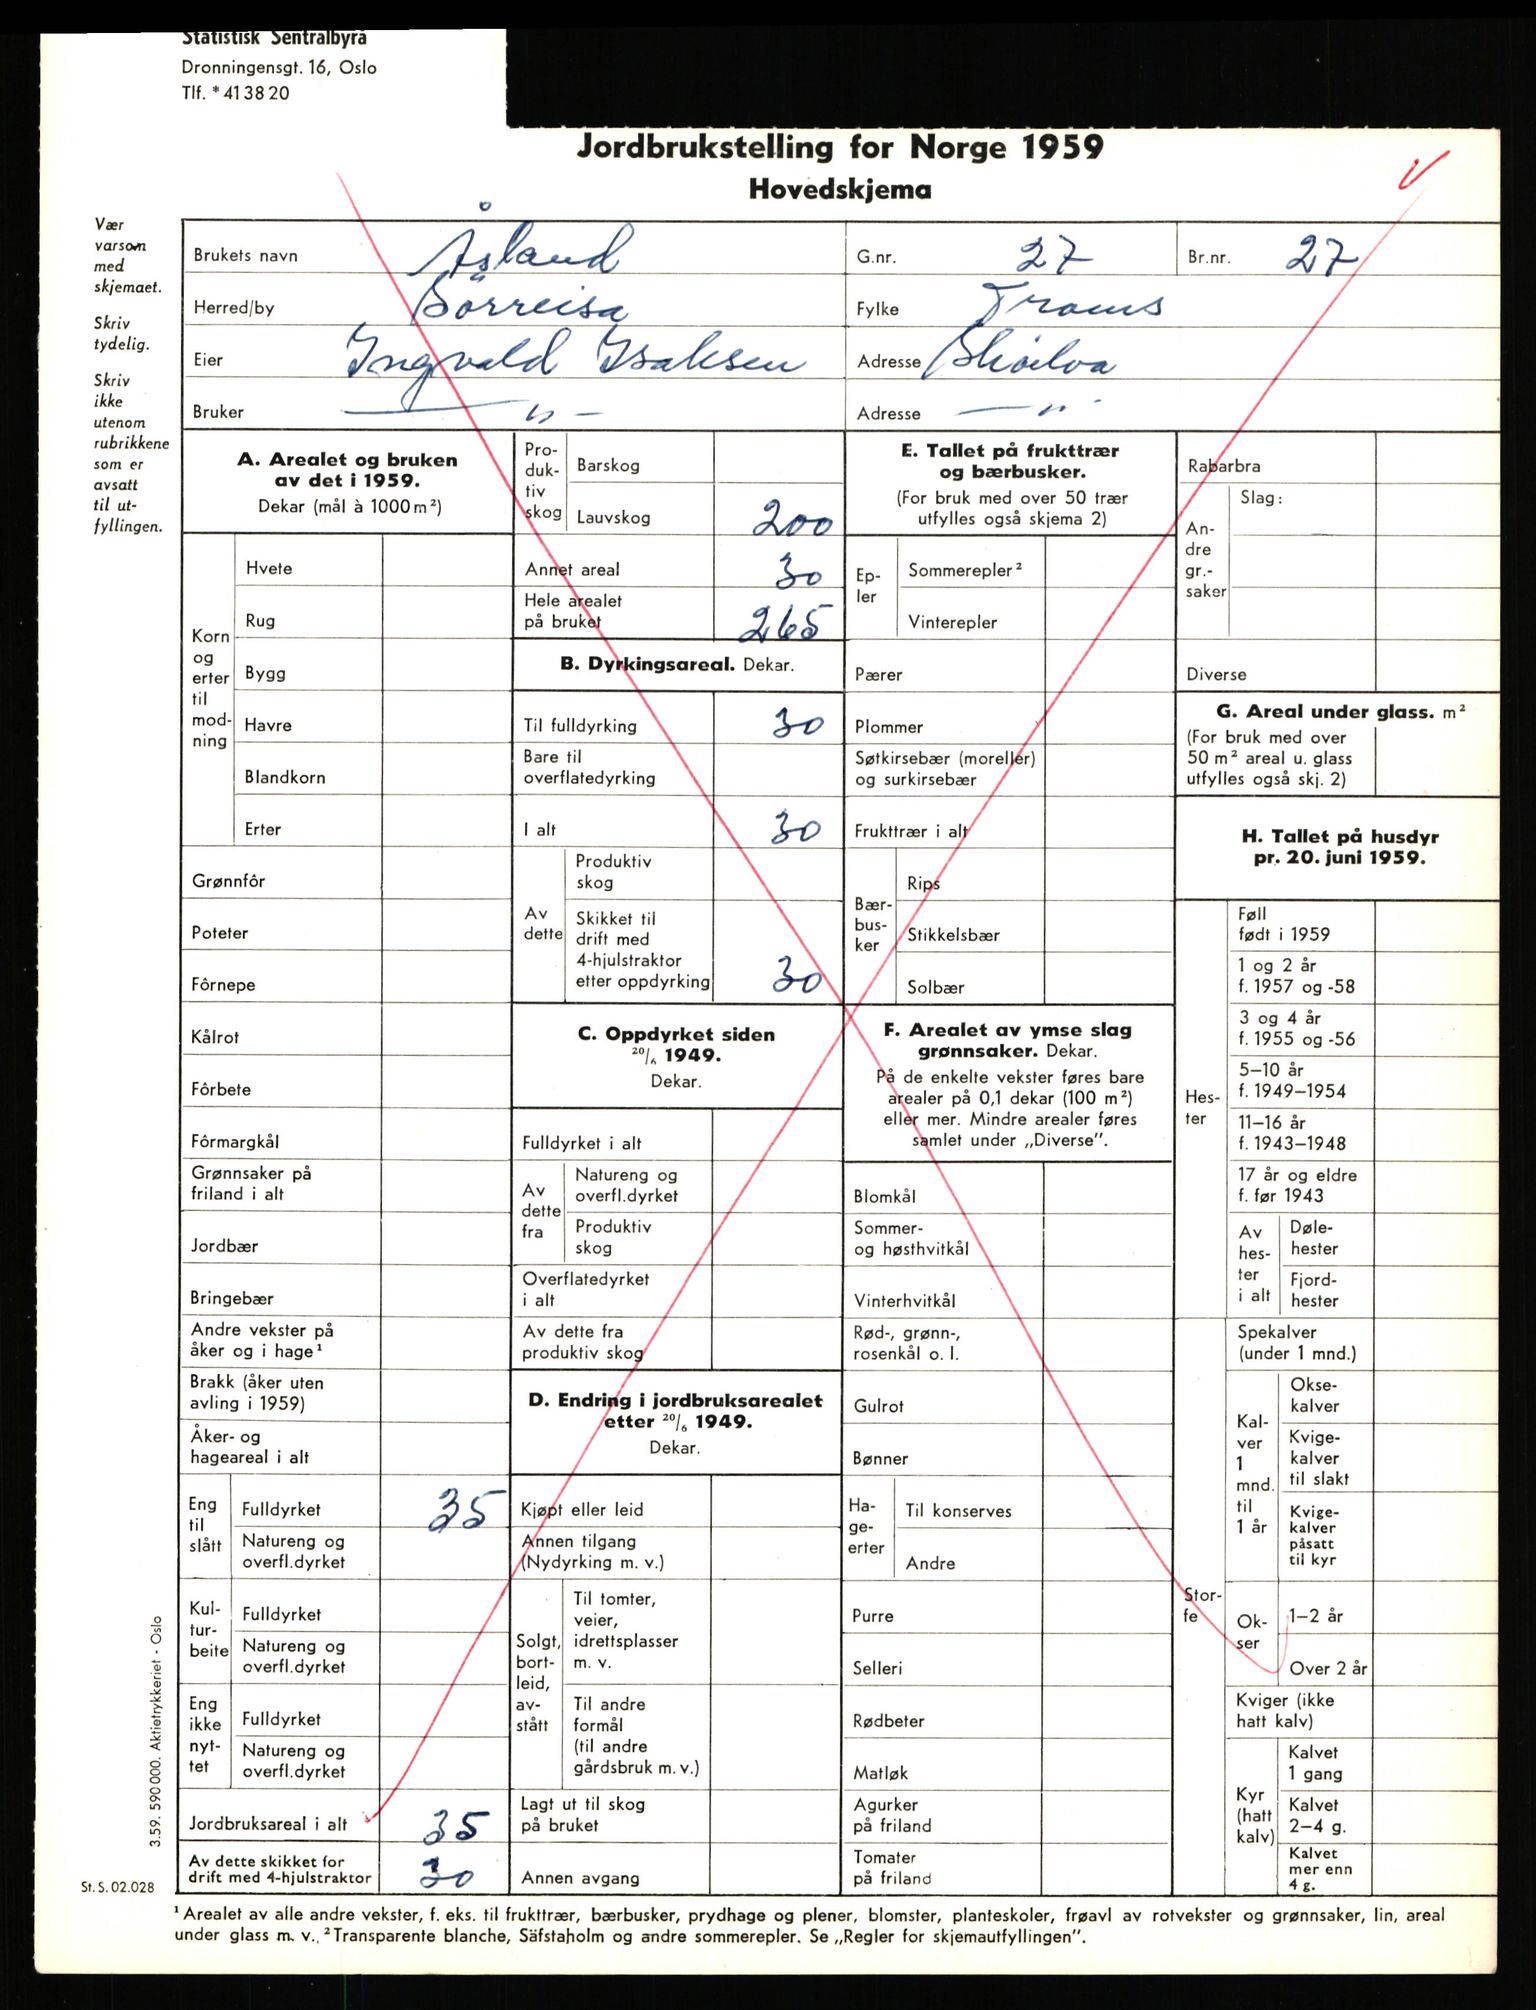 Statistisk Sentralbyrå
Dronningensgt. 16, Oslo
Tlf. * 41 38 20
Jordbrukstelling for Norge 1959
Hovedskjema
Vær
varsom
med
skjemaet.
Skriv
tydelig.
Skriv
ikke
utenom
rubrikkene
som er
avsatt
til ut-
fyllingen.
Brukets navn Åsland G.nr. 27 Br.nr. 27
Herred/by Sörreisa Fylke Troms
Eier Ingvald Isaksen Adresse
Bruker — " — Adresse — " -
A. Arealet og bruken
av det i 1959.
Dekar (mål à 1000 m²)
Korn
og
erter
til
mod-
ning
Hvete
Rug
Bygg
Havre
Blandkorn
Erter
Grønnfôr
Poteter
Fôrnepe
Kålrot
Fôrbete
Fôrmargkål
Grønnsaker på
friland i alt
Jordbær
Bringebær
Andre vekster på
åker og i hage¹
Brakk (åker uten
avling i 1959)
Åker- og
hageareal i alt
Eng
til
slått
Fulldyrket 35
Natureng og
overfl.dyrket
Kul-
tur-
beite
Fulldyrket
Natureng og
overfl.dyrket
Eng
ikke
nyt-
tet
Fulldyrket
Natureng og
overfl.dyrket
Jordbruksareal i alt 35
Av dette skikket for
drift med 4-hjulstraktor 30
Pro-
duk-
tiv
skog
Barskog
Lauvskog 200
Annet areal 30
Hele arealet
på bruket 265
B. Dyrkingsareal. Dekar.
Til fulldyrking 30
Bare til
overflatedyrking
I alt 30
Av
dette
Produktiv
skog
Skikket til
drift med
4-hjulstraktor
etter oppdyrking 30
C. Oppdyrket siden
20/6 1949.
Dekar.
Fulldyrket i alt
Av
dette
fra
Natureng og
overfl.dyrket
Produktiv
skog
Overflatedyrket
i alt
Av dette fra
produktiv skog
D. Endring i jordbruksarealet
etter 20/6 1949.
Dekar.
Kjøpt eller leid
Annen tilgang
(Nydyrking m. v.)
Solgt,
bort-
leid,
av-
stått
Til tomter,
veier,
idrettsplasser
m. v.
Til andre
formål
(til andre
gårdsbruk m. v.)
Lagt ut til skog
på bruket
Annen avgang
E. Tallet på frukttrær
og bærbusker.
(For bruk med over 50 trær
utfylles også skjema 2)
Ep-
ler
Sommerepler²
Vinterepler
Pærer
Plommer
Søtkirsebær (moreller)
og surkirsebær
Frukttrær i alt
Bær-
bus-
ker
Rips
Stikkelsbær
Solbær
F. Arealet av ymse slag
grønnsaker. Dekar.
På de enkelte vekster føres bare
arealer på 0,1 dekar (100 m²)
eller mer. Mindre arealer føres
samlet under „Diverse”.
Blomkål
Sommer-
og høsthvitkål
Vinterhvitkål
Rød-, grønn-,
rosenkål o. l.
Gulrot
Bønner
Ha-
ge-
erter
Til konserves
Andre
Purre
Selleri
Rødbeter
Matløk
Agurker
på friland
Tomater
på friland
Rabarbra
An-
dre
gr.-
saker
Slag:
Diverse
G. Areal under glass. m²
(For bruk med over
50 m² areal u. glass
utfylles også skj. 2)
H. Tallet på husdyr
pr. 20. juni 1959.
Hes-
ter
Føll
født i 1959
1 og 2 år
f. 1957 og -58
3 og 4 år
f. 1955 og -56
5–10 år
f. 1949–1954
11–16 år
f. 1943–1948
17 år og eldre
f. før 1943
Av
hes-
ter
i alt
Døle-
hester
Fjord-
hester
Stor-
fe
Spekalver
(under 1 mnd.)
Kal-
ver
1
mnd.
til
1 år
Okse-
kalver
Kvige-
kalver
til slakt
Kvige-
kalver
påsatt
til kyr
Ok-
ser
1–2 år
Over 2 år
Kviger (ikke
hatt kalv)
Kyr
(hatt
kalv)
Kalvet
1 gang
Kalvet
2–4 g.
Kalvet
mer enn
4 g.
3.59. 590 000. Aktietrykkeriet - Oslo
St. S. 02.028
¹ Arealet av alle andre vekster, f. eks. til frukttrær, bærbusker, prydhage og plener, blomster, planteskoler, frøavl av rotvekster og grønnsaker, lin, areal
under glass m. v.. ² Transparente blanche, Säfstaholm og andre sommerepler. Se „Regler for skjemautfyllingen”.